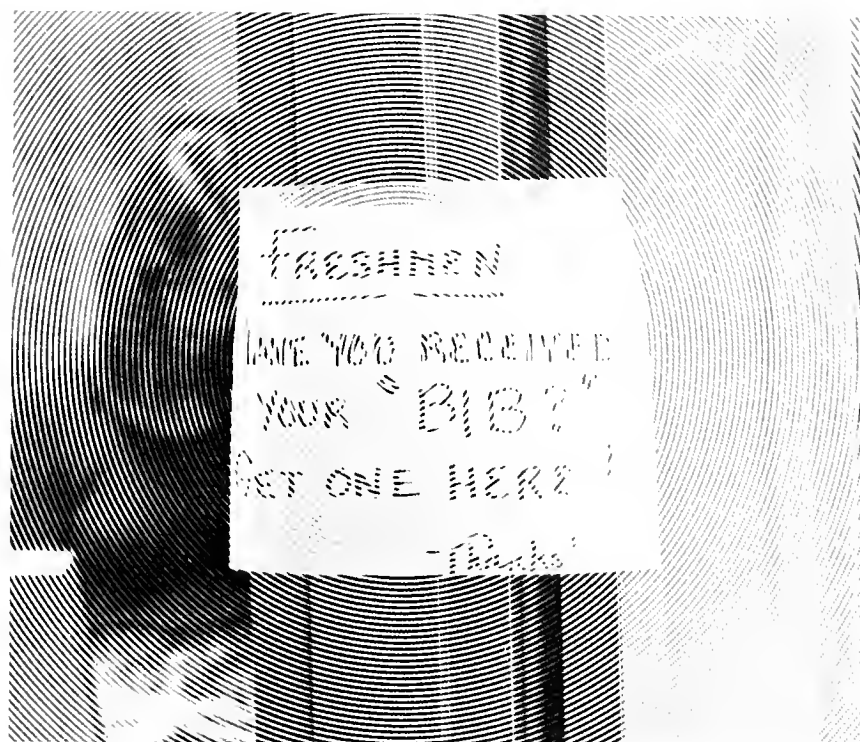 FRESHMEN
HAVE YOU RECEIVED
YOUR "BIB?"
GET ONE HERE!